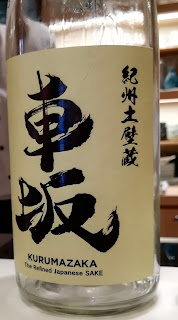 紀州土壁蔵
車坂
KURUMAZAKA
The Refined Japanese SAKE